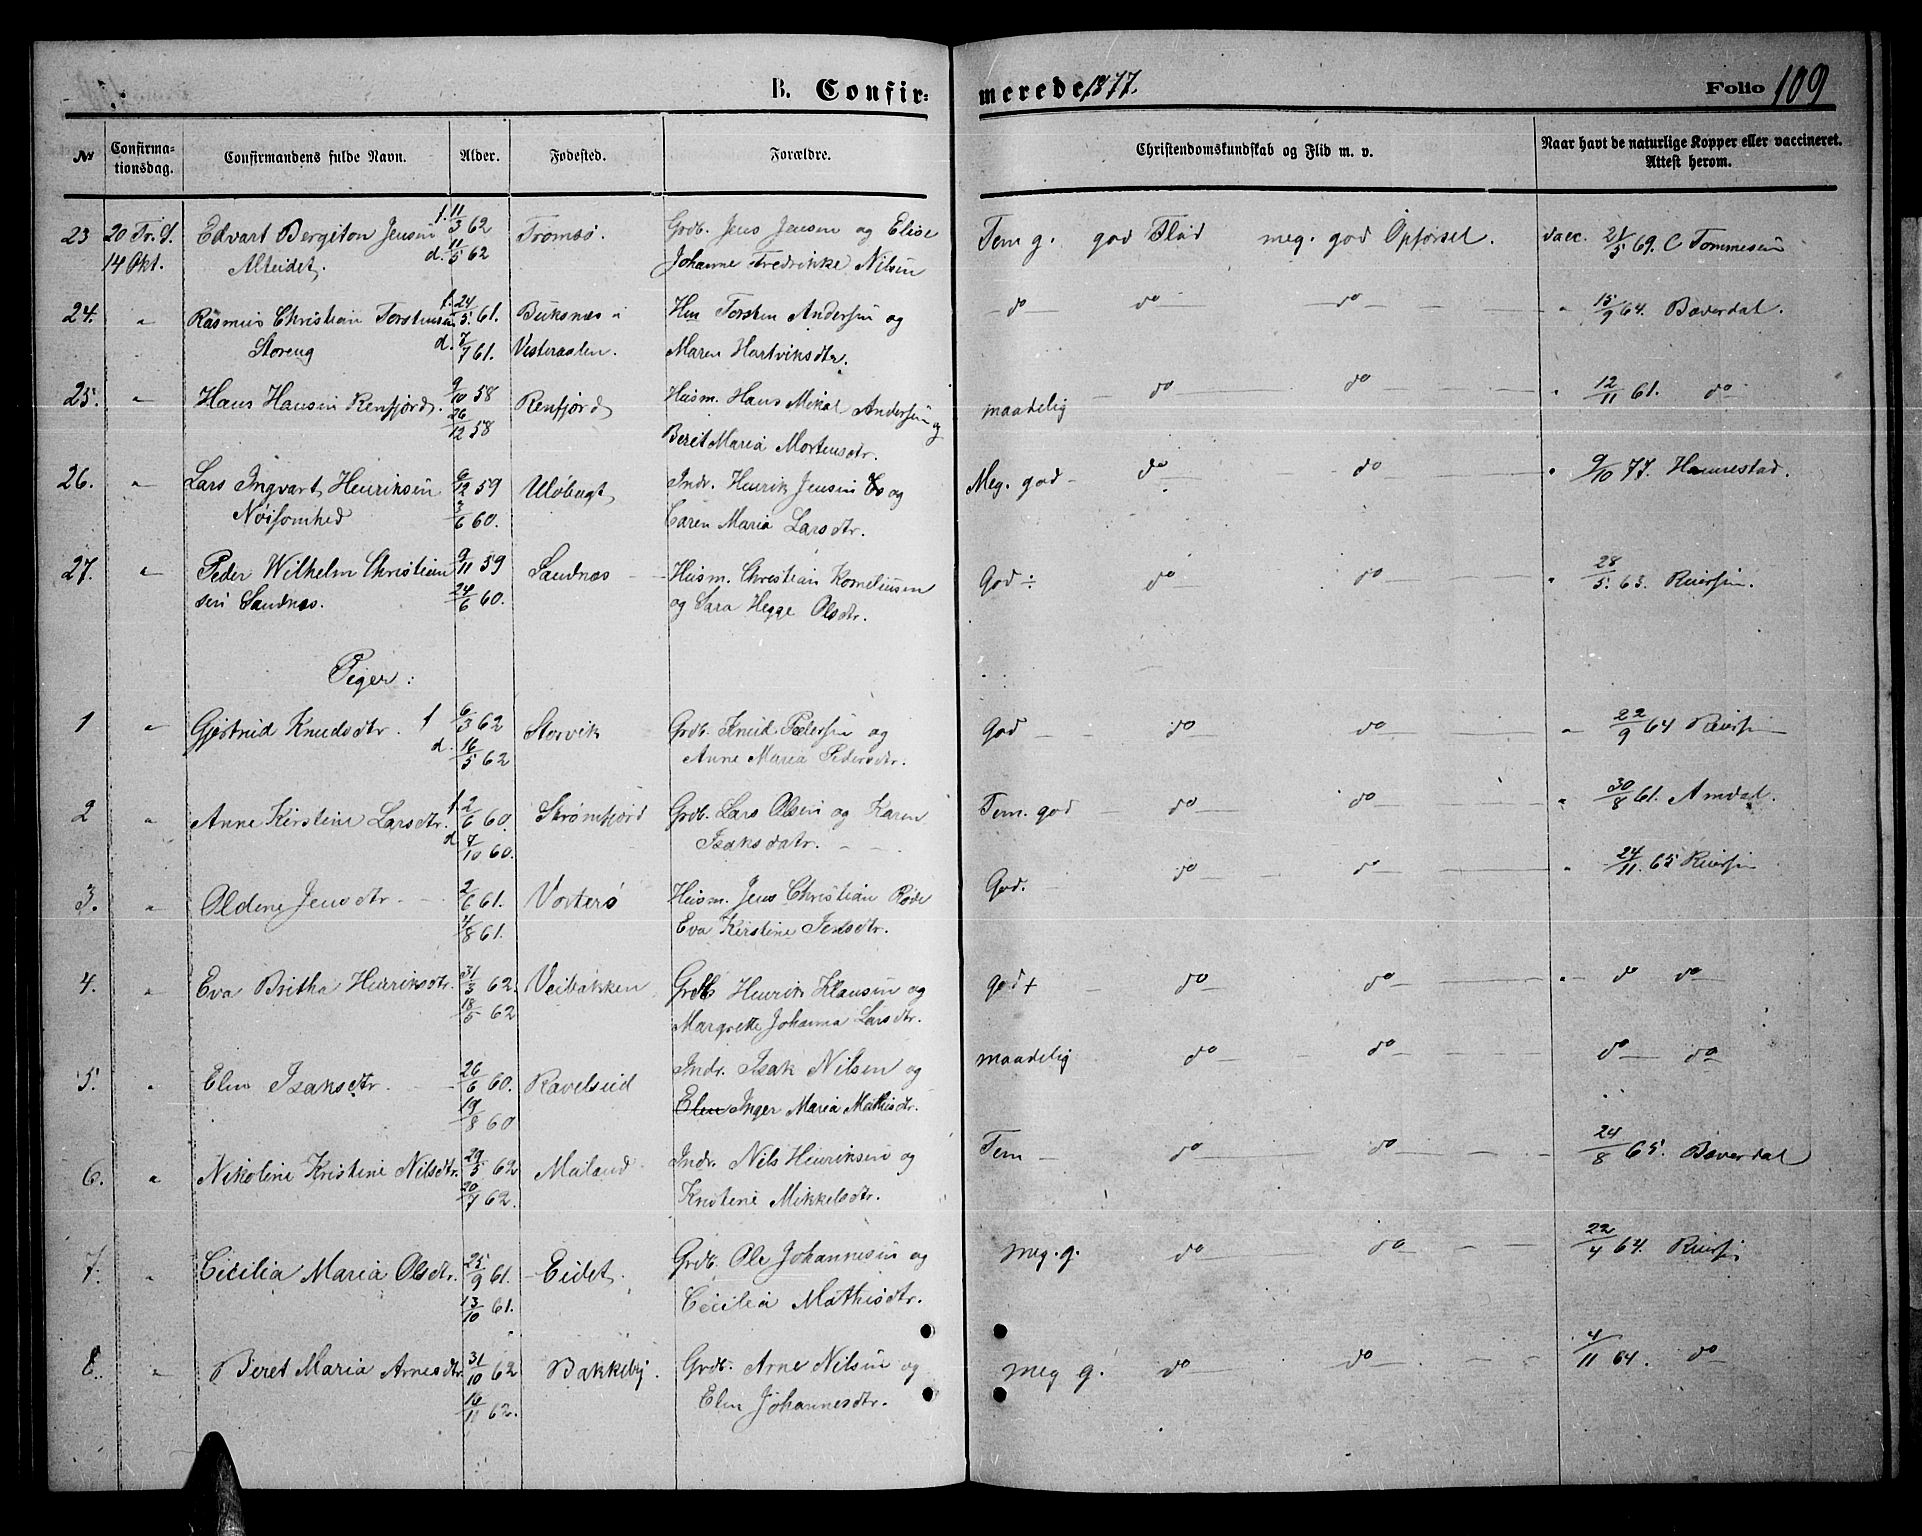 B. Confir=
merede 1877.
Folio 109
No
Confirma-
tionsdag.
Confirmandens fulde Navn.
Alder.
Fødested.
Forældre.
Christendomskundskab og Flid m. v.
Naar havt de naturlige Kopper eller vaccineret.
Attest herom.
23 20 Tr. S. Edvart Bergiton Jensen f. 11/3 62 Tromsø. Grdb. Jens Jensen og Elise Tem g. god Flid meg. god Opførsel. vacc. 21/5 69. C Tommesen
14 Okt. Alteidet. d. 11/5 62 Johanne Fredrikke Nilsen
24. " Rasmus Christian Torstensen f. 24/5 61. Buksnæs i Hm Torsten Andersen og do do do 15/9 64. Bæverdal.
Storeng d. 7/7 61. Vesteraalen. Maren Hartviksdtr.
25. " Hans Hansen Renfjord. 9/10 58 Renfjord Husm. Hans Mikal Andersen og maadelig do do " 12/11 61. do
26/12 58 Berit Maria Mortensdtr.
26. " Lars Ingvart Henriksen 9/12 59 Uløbugt Indr. Henrik Jensen og Meg. god do do " 9/10 77. Hannestad.
Nøisomhed 3/6 60. Caren Maria Larsdtr.
27. " Peder Wilhelm Christian 9/11 59 Sandnæs Husm. Christian Korneliusen God ÷ do do " 28/5 63. Kiersen.
sen Sandnæs. 24/6 60. og Sara Hegge Olsdtr.
Piger:
1 " Gjertrud Knudsdtr. f 6/3 62 Storvik Grdb. Knud Pedersen og God do do " 22/9 64 Kiersen
d. 16/5 62 Anne Maria Pedersdtr.
2 " Anne Kirstine Larsdtr. f 2/6 60. Skrømfjord Grdb. Lars Olsen og Karen Tem. god do do " 30/8 61. Amdal.
d 7/10 60. Isaksdatr.
3. " Oldene Jensdtr. 2/6 61. Vorterø Husm. Jens Christian Røde God. do do " 24/11 65 Kiersen
4/8 61. Eva Kirstine Jensdtr.
4. " Eva Britha Henriksdtr. 31/3 62. Veibakken Grdb Henrik Klausen og god + do do " do do
18/5 62 Margrette Johanna Larsdtr.
5. " Elen Isaksdtr. 26/6 60. Ravelseid Indr. Isak Nilsen og maadelig do do do do
19/8 60 Elen Inger Maria Mathisdtr.
6. " Nikoline Kristine Nilsdtr. 29/5 62 Mailand Indr. Nils Henriksen og Tem do do 24/8 65. Bæverdal
20/7 62. Kristene Mikkelsdtr.
7. " Cecilia Maria Olsdtr. 25/9 61. Eidet. Grdb. Ole Johannesen og meg. g. do do 22/4 64. Kiersen
13/10 61. Cecilia Mathisdtr.
8. " Beret Maria Arnesdtr. 31/10 62 Bakkeby. Grdb. Arne Nilsen og meg g. do do 4/11 64. do
14/11 62. Elen Johannesdtr.